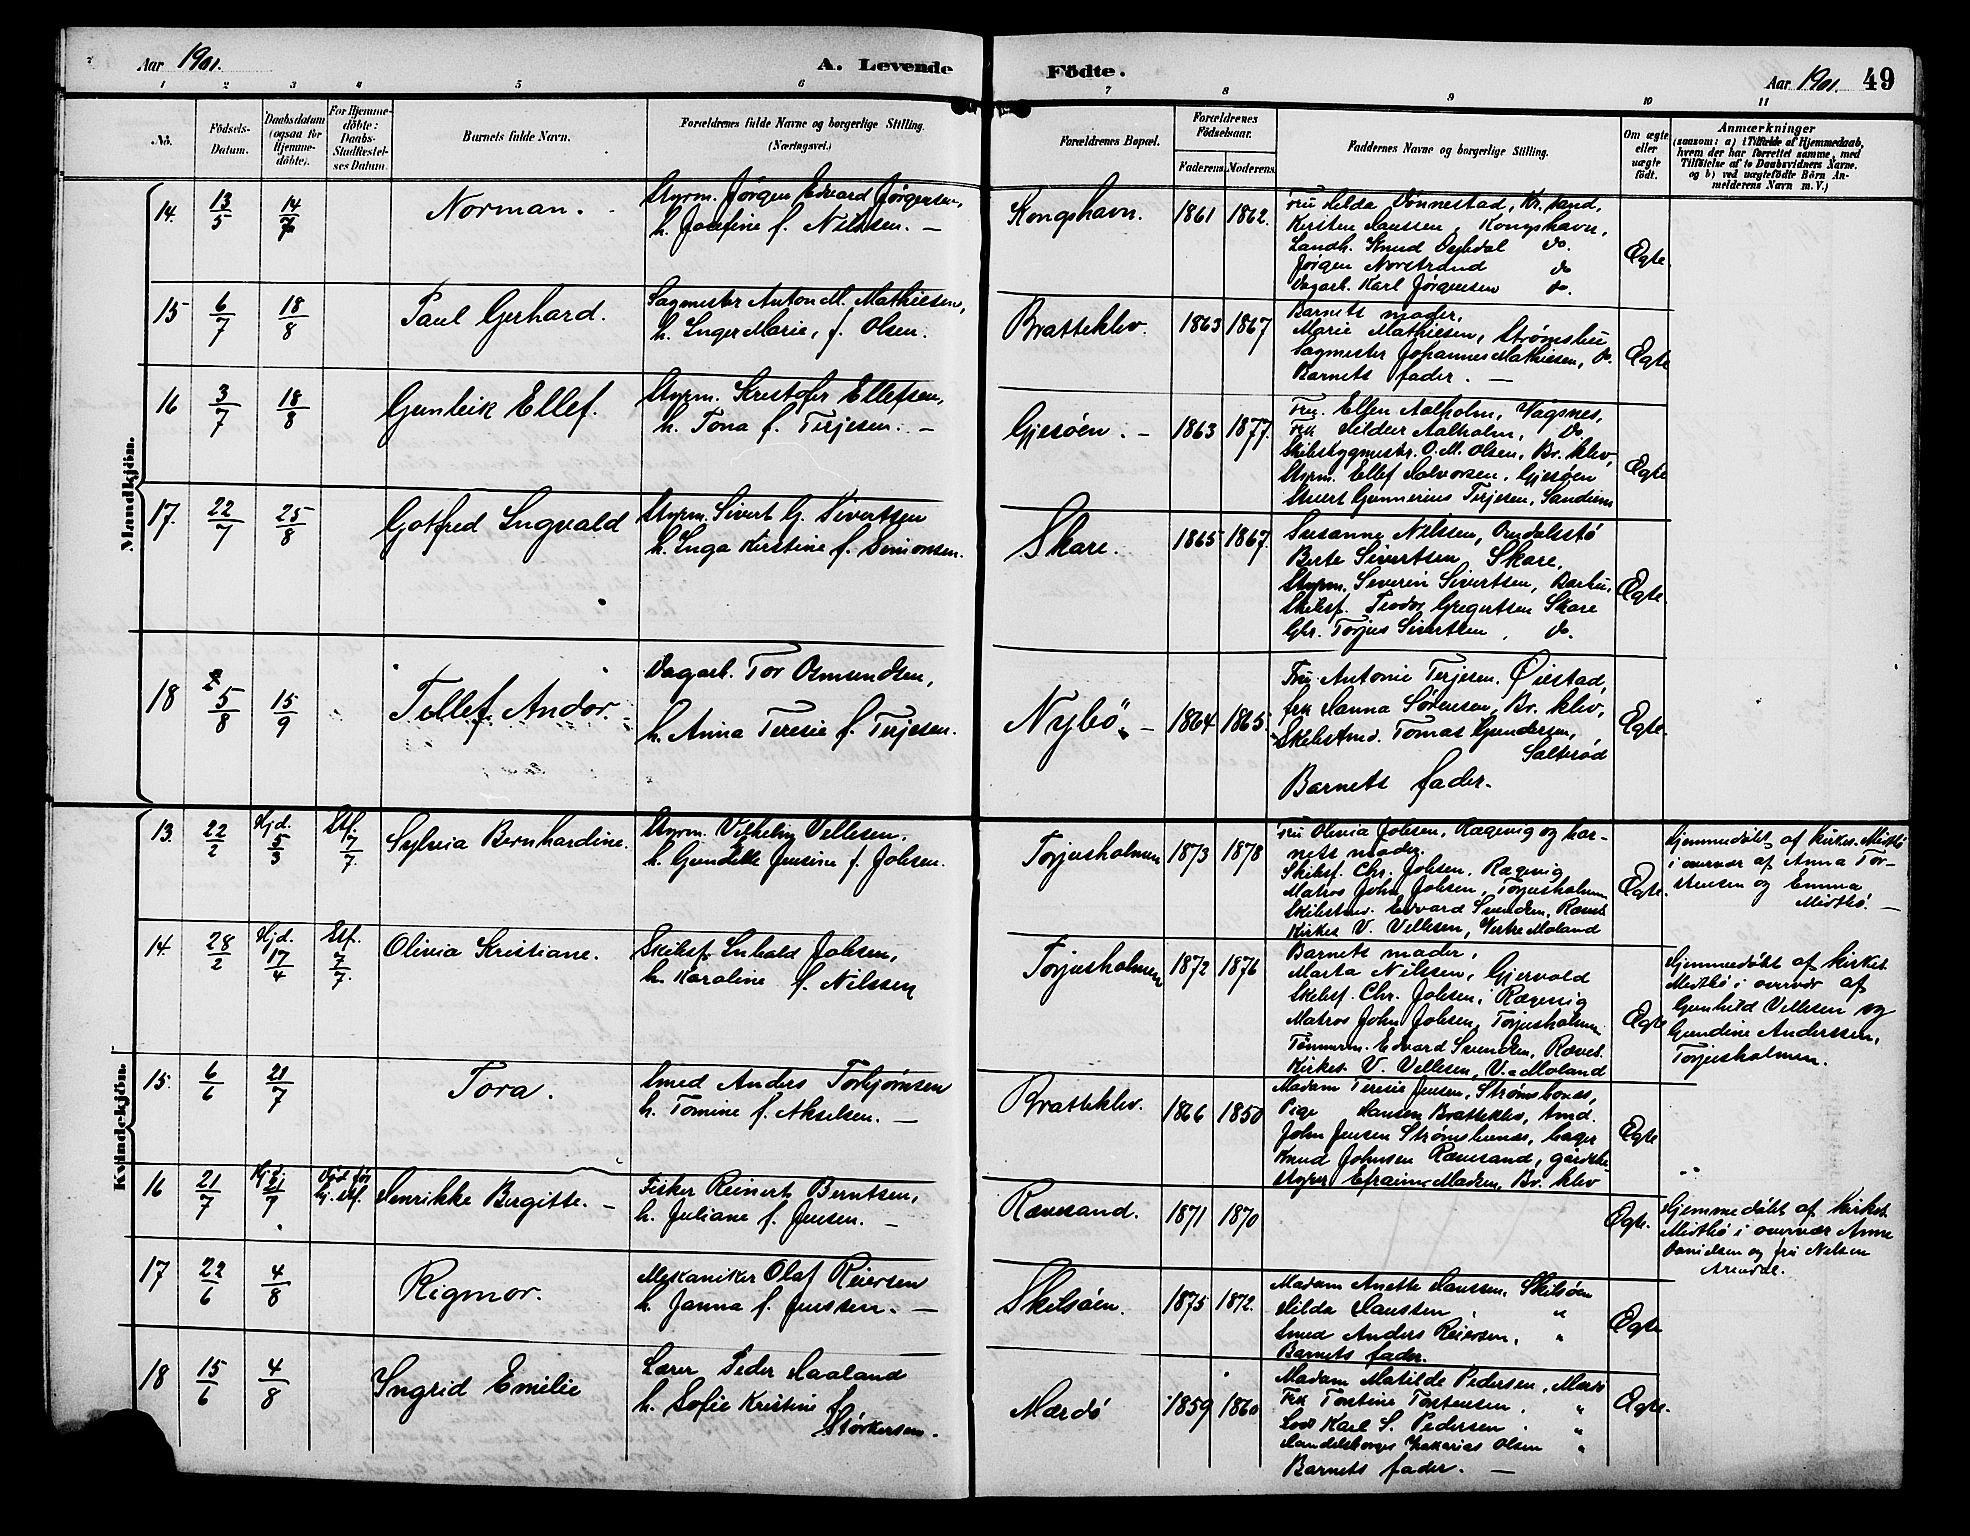 Aar 1901. A. Levende Födte. Aar 1901. 49
1 2 3 4 5 6 7 8 9 10 11
No.
Födsels-Datum.
Daabsdatum (ogsaa for Hjemmedöbte).
For Hjemmedöbte: Daabs-Stadfæstelses Datum.
Barnets fulde Navn.
Forældrenes fulde Navne og borgerlige Stilling. (Næringsvei.)
Forældrenes Bopæl.
Forældrenes Födselsaar.
Faderens Moderens
Faddernes Navne og borgerlige Stilling.
Om ægte eller uægte födt.
Anmærkninger
(saasom: a) i Tilfælde af Hjemmedaab, hvem der har forrettet samme, med Tilföielse af to Daabsvidners Navne, og b) ved uægtefödte Börn Anmelderens Navn m. V.)
Mandkjön.
14. 13/5 14/7 Norman.
Styrm. Jørgen Edvard Jørgensen,
h. Josefine f. Nilssen. —
Kongshavn. 1861 1862.
Fru Hilda Dønnestad, Kr.sand,
Kirsten Hanssen, Kongshavn,
Landh. Knud Do.
Jørgen Norstrand do
Dagarb. Karl Jørgensen do.
Ægte.
15 6/7 18/8 Paul Gerhard.
Sagmester Anton M. Mathiesen,
h. Inger Marie, f. Olsen.
Bratteklev. 1863 1867
Barnets moder,
Marie Mathiesen, Strømsbu
Sagmester Johannes Mathiesen, Do.
Barnets fader. —
Ægte
16 3/7 18/8 Gunleik Ellef.
Styrm. Kristofer Ellefsen,
h. Tona f. Terjesen. —
Gjesøen. — 1863 1877.
Fru. Ellen Aalholm, Vågsnes,
Frk Aalholm, Do.
Skibsbygmestr. O. M. Olsen, Br. klev,
Styrm. Ellef Halvorsen, Gjesøen
Stuert Gunnerius Terjesen, Sandum
Ægte
17. 22/7 25/8 Gotfred Ingvald
Styrm. Sivert G. Sivertsen
h. Inga Kirstine f. Simonsen.
Skare. 1865 1867.
Susanne Nilssen, Omdalsstø
Berte Sivertsen, Skare,
Styrm. Severin Sivertsen, Barbu,
Skibsf. Teodor Gregertsen Skare
Gbr. Torjus Sivertsen, do.
Ægte.
18 25/8 15/9 Tellef Andor.
Dagarb. Tor Osmundsen,
h. Anna Teresie f. Terjesen.
Nybö. — 1864 1865.
Fru. Antonie Terjesen, Øiestad,
frk Hanna Sørensen, Br. klev,
Skibstmd. Tomas Gundersen,
Salterød
Barnets fader.
Ægte.
Kvindekjön.
13. 22/2 Hjd. 5/3 Stf. 7/7 Sylvia Bernhardine.
Styrm. Vilhelm Vellesen,
h. Gundelle Jensine f. Jobsen.
Torjusholmen 1873 1878
Fru Olivia Jobsen, Rægevig og bar-
nets moder.
Skibsf. Chr. Jobsen, Rægevig
Matros John Jobsen, Torjusholmen
Skibstmd. Edvard Svendsen, Ræves.
Kirkes. V. Vellesen, Vestre Moland
Ægte.
Hjemmedøbt af kirkes. Midtbø
i overvær af Anna Tor-
stensen og Emma
Midtbø. —
14. 28/2 Hjd. 17/4 Stf. 7/7 Olivia Kristiane.
Skibsf. Jobsen,
h. Karoline f. Nilssen
Torjusholmen 1872 1876
Barnets moder,
Marta Nilsen, Gjervold
Skibsf. Chr. Jobsen, Rægevig
Matros John Jobsen, Torjusholmen
Tømmerm. Edvard Svendsen, Ræves.
Kirkes. V. Vellesen, V. Moland
Ægte
Hjemmedøbt af kirkes.
Midtbø i overvær af
Gunhild Vellesen og
Gundine Anderssen,
Torjusholmen.
15. 6/6 21/7 Tora.
Smed Anders Torbjørnsen
h. Tomine f. Akselsen. —
Bratteklev. 1866 1850
Madam Teresie Jensen, Strømsbones,
Pige Hansen Bratteklev, tmd.
John Jensen Strømsbunes, bager
Knud Johnsen Rævesand, gårdbe-
styrer Efraim Madsen, Br. klev
Ægte
16 21/7 Hjd. 21/7 Død før stf. Henrikke Birgitte. —
Fisker Reinert Berntsen,
h. Juliane f. Jensen. —
Rævesand. 1871 1870
Ægte.
Hjemmedøbt af kirkes.
Midtbø i overvær Anne
Danielsen og fru Nilsen
Arendal.
17 22/6 4/8 Rigmor.
Mekaniker Olaf Reiersen
h. Janna f. Jenssen. —
Skilsøen. 1875 1872.
Madam Anette Hanssen, Skilsøen
Hilda Hanssen, "
Smed Anders Reiersen, "
Barnets fader.
Ægte
18 15/6 4/8 Ingrid Emilie
Lærer Peder Haaland
h. Sofie Kristine f.
Størkersen.
Mærdö 1859 1860
Madam Matilde Pedersen, Mærdö
Frk Torstine Torstensen, "
Lods Karl S. Pedersen, "
Handelsborger Zakarias Olsen "
Barnets fader. —
Ægte.